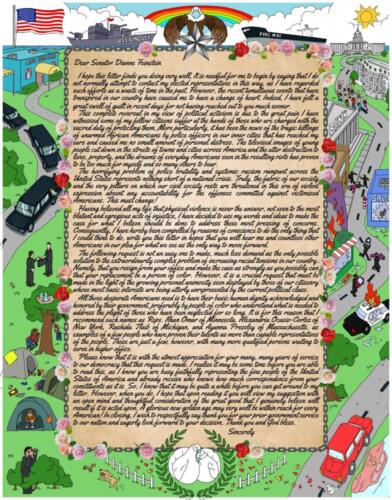 Dear Senator Dianne Feinstein
I hope this letter finds you doing very well. It is needful for me to begin by saying that I do
not normally attempt to contact my elected representatives in this way, as I have regarded
such efforts as a waste of time in the past. However, the recent tumultuous events that have
transpired in our country have caused me to have a change of heart. Indeed, I have felt a
great swell of guilt in recent days for not having reached out to you much sooner.
This complete reversal in my view of political activism is due to the great pain I have
witnessed some of my fellow citizens suffer at the hands of those who are charged with the
sacred duty of protecting them. More particularly, it has been the news of the tragic killings
of unarmed African Americans by police officers in our inner cities that has reached my
ears and caused me no small amount of personal distress. The televised images of young
people cut down in the streets of towns and cities across America and the utter destruction to
lives, property, and the dreams of everyday Americans seen in the resulting riots has proven
to be too much for myself and so many others to bear.
The horrifying problem of police brutality and systemic racism rampant across the
United States represents nothing short of a national crisis. Truly, the fabric of our society
and the very pillars on which our civil society rests are threatened in this era of violent
oppression absent any accountability for the offenses committed against victimized
Americans. This must change.
Having believed all my life that physical violence is never the answer, not even to the most
blatant and egregious acts of injustice, I have decided to use my words and ideas to make the
case for what I believe should be done to address these most pressing of concerns.
Consequently, I have hereby been compelled by reasons of conscience to do the only thing that
I could think to do, write you this letter in hopes that you will hear me and countless other
Americans in our plea for what we see as the only way to move forward.
The following request is not an easy one to make, much less demand as the only possible
solution to the extraordinarily complex problem of increasing racial tensions in our country.
Namely, that you resign from your office and make the case as strongly as you possibly can
that your replacement be a person of color. However, it is a crucial request that must be
made in the light of the growing personal animosity seen displayed by those of our citizenry
whose most basic interests are being utterly unrepresented by the current political class.
All those desperate Americans need is to have their basic human dignity acknowledged and
honored by their government, preferably by people of color who understand what is needed to
address the plight of those who have been neglected for so long. It is for this reason that I
recommend such names as Reps. Ilhan Omar of Minnesota, Alexandria Ocasio-Cortez of
New York, Rashida Tlaib of Michigan, and Ayanna Pressley of Massachusetts, as
examples of a few people who have proven their talents as more than capable representatives
of the people. These are just a few, however, with many more qualified persons waiting to
serve in higher office.
Please know that it is with the utmost appreciation for your many, many years of service
to our democracy that this request is made. I realize it may be some time before you are able
to read this, as I know you are busy faithfully representing the fine people of the United
States of America and already receive who knows how much correspondence from your
constituents as it is. So, I know that it may be quite a while before you can get around to my
letter. However, when you do, I hope that upon reading it you will view my suggestion with
an open mind and thoughtful consideration of the great good that I genuinely believe will
result if it is acted upon. A glorious new golden age may very well be within reach for every
American! In closing, I wish to respectfully say thank you for your prior government service
to our nation and eagerly look forward to your decision. Thank you and God bless.
Sincerely